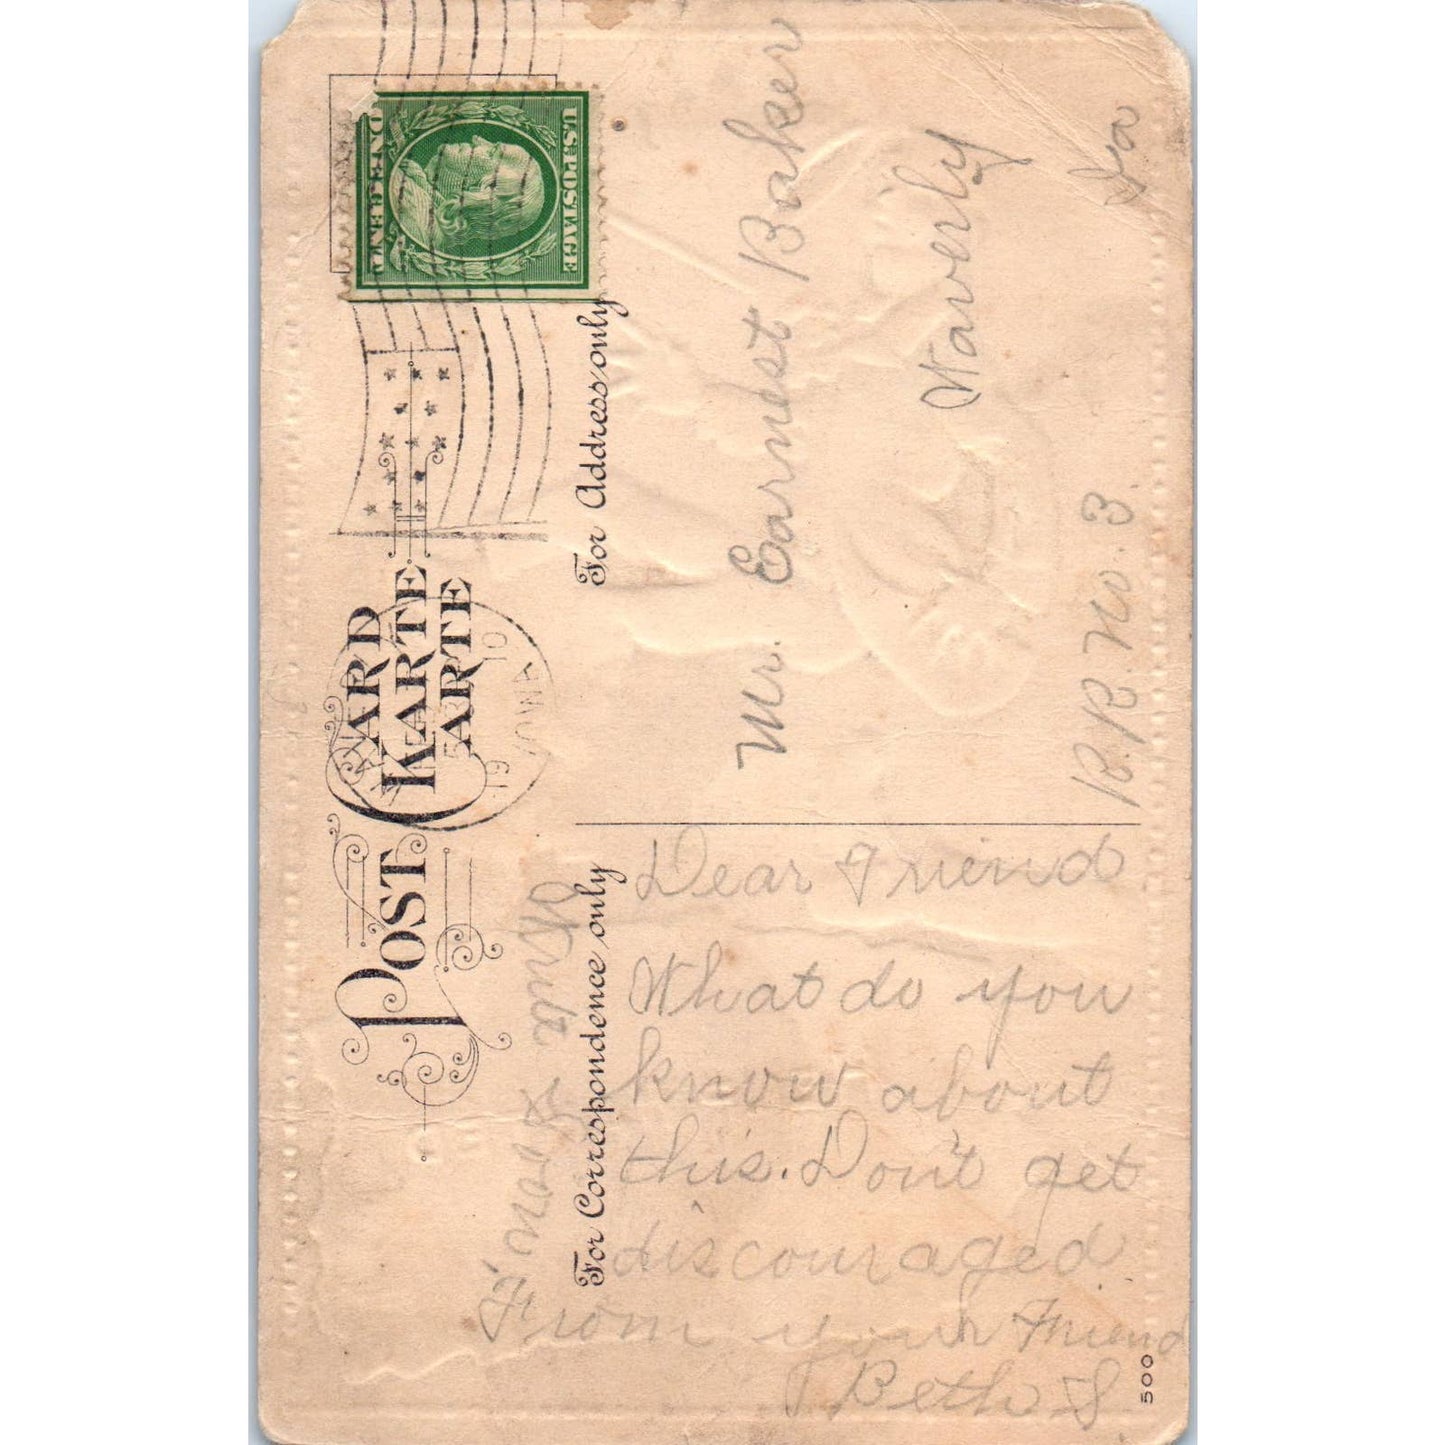 POST CARD
CARTE
KARTE
U.S. POSTAGE
ONE CENT
For Correspondence only
For Address only
19 10
IOWA
Mr. Earnest Baker
Waverly
R.R. no. 3.
Ia
Dear Friend
What do you
know about
this. Don't get
discouraged
From your Friend
Beth S.
Write soon
500